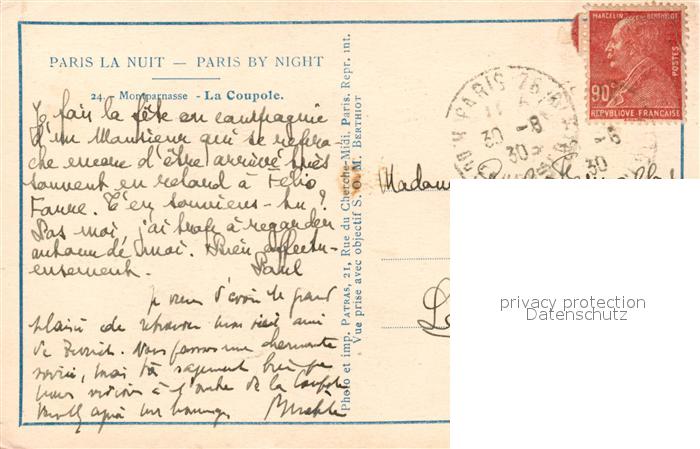 PARIS LA NUIT — PARIS BY NIGHT
24 - Montparnasse - La Coupole.
Je fais la fête en compagnie
d'un Monsieur qui se repro-
che encore d'être arrivé très
souvent en retard à Félix
Faure. T'en souviens-tu ?
Pas moi, j'ai trop à regarder
autour de moi. Bien affectu-
eusement. Paul
je viens d'avoir le grand
plaisir de retrouver mon vieil ami
de Zurich. Nous passons une charmante
soirée, mais
nous à l'ombre de la Coupole
hommages
Photo et imp. PATRAS, 21, Rue du Cherche-Midi, Paris. Repr. int.
Vue prise avec objectif S. O. M. BERTHIOT
MARCELIN BERTHELOT
POSTES
90c
RÉPUBLIQUE FRANÇAISE
PARIS
30 -8
30
Madame
privacy protection
Datenschutz